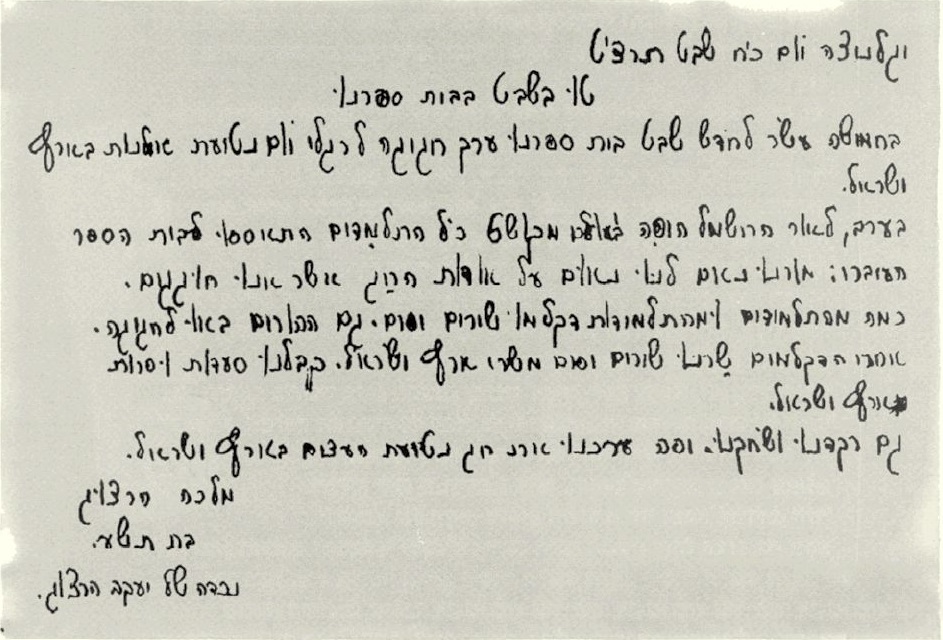 יום כ״ח שבט תרצ״ט
ט״ו בשבט בבית ספרנו
בחמשה עשר לחדש שבט בית ספרנו ערך חגיגה לרגלי יום נטיעת אילנות בארץ
ישראל.
בערב, לאור החשמל היפה כל התלמידים התאספו לבית הספר
העברי: מורנו נאם לנו נאום על אודות החג אשר אנו חוגגים.
כמה מהתלמידים ומהתלמידות דקלמו שירים יפים. גם ההורים באו לחגיגה.
אחרי הדקלמים שרנו שירים יפים משירי ארץ ישראל. קבלנו סעדת ופירות
ארץ ישראל.
גם רקדנו ושחקנו. יפה ערכנו את חג נטיעת העצים בארץ ישראל.
מלכה הרצויג
בת תשע.
נכדה של יעקב הרצוג.